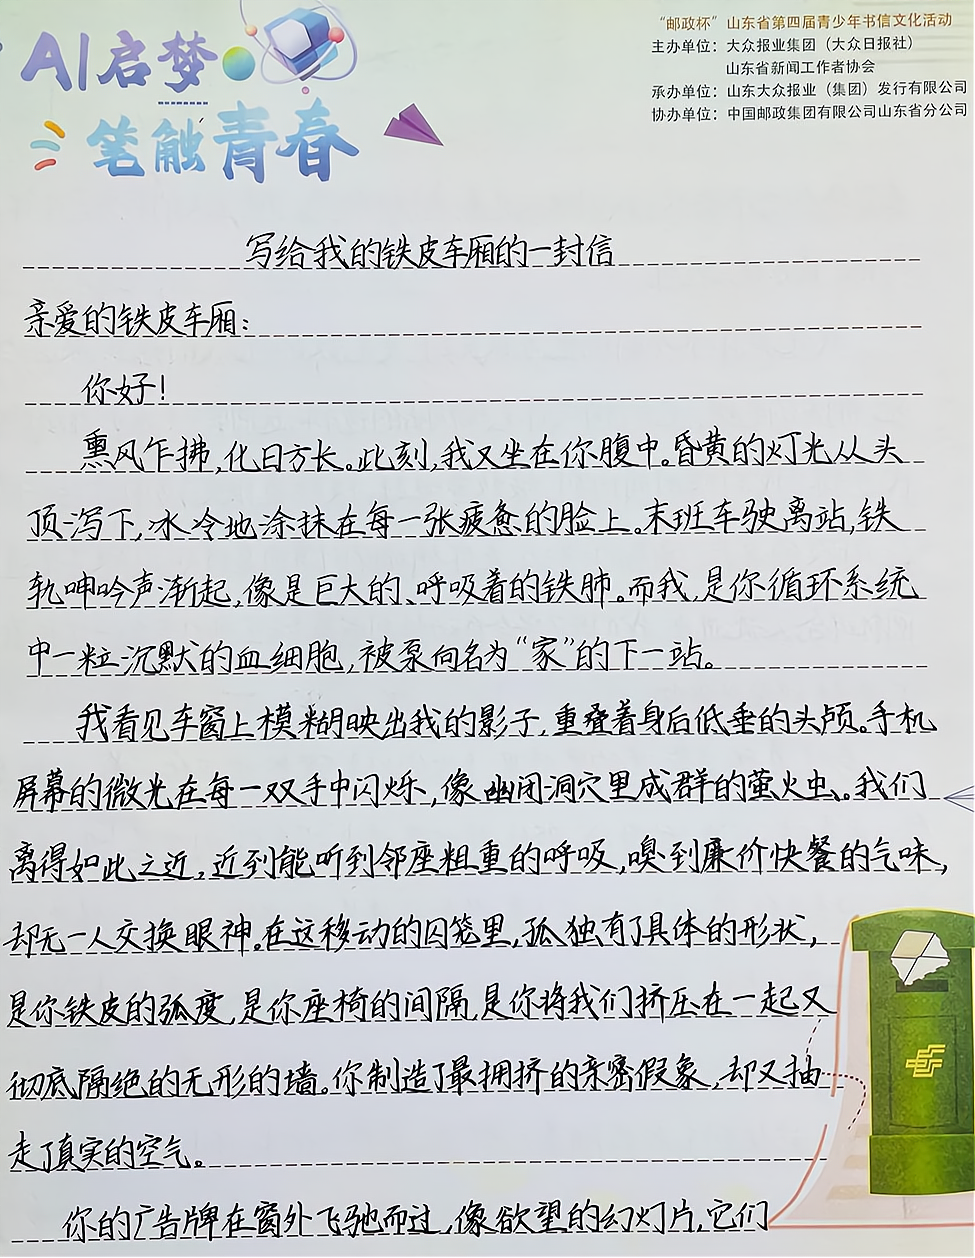 AI启梦
笔触青春
“邮政杯”山东省第四届青少年书信文化活动
主办单位：大众报业集团（大众日报社）
山东省新闻工作者协会
承办单位：山东大众报业（集团）发行有限公司
协办单位：中国邮政集团有限公司山东省分公司
写给我的铁皮车厢的一封信
亲爱的铁皮车厢：
你好！
熏风乍拂，化日方长。此刻，我又坐在你腹中。昏黄的灯光从头
顶泻下，冰冷地涂抹在每一张疲惫的脸上。末班车驶离站，铁
轨呻吟声渐起，像是巨大的、呼吸着的铁肺。而我，是你循环系统
中一粒沉默的血细胞，被泵向名为“家”的下一站。
我看见车窗上模糊映出我的影子，重叠着身后低垂的头颅。手机
屏幕的微光在每一双手中闪烁，像幽闭洞穴里成群的萤火虫。我们
离得如此之近，近到能听到邻座粗重的呼吸，嗅到廉价快餐的气味，
却无一人交换眼神。在这移动的囚笼里，孤独有了具体的形状，
是你铁皮的弧度，是你座椅的间隔，是你将我们挤压在一起又
彻底隔绝的无形的墙。你制造了最拥挤的亲密假象，却又抽
走了真实的空气。
你的广告牌在窗外飞驰而过，像欲望的幻灯片，它们